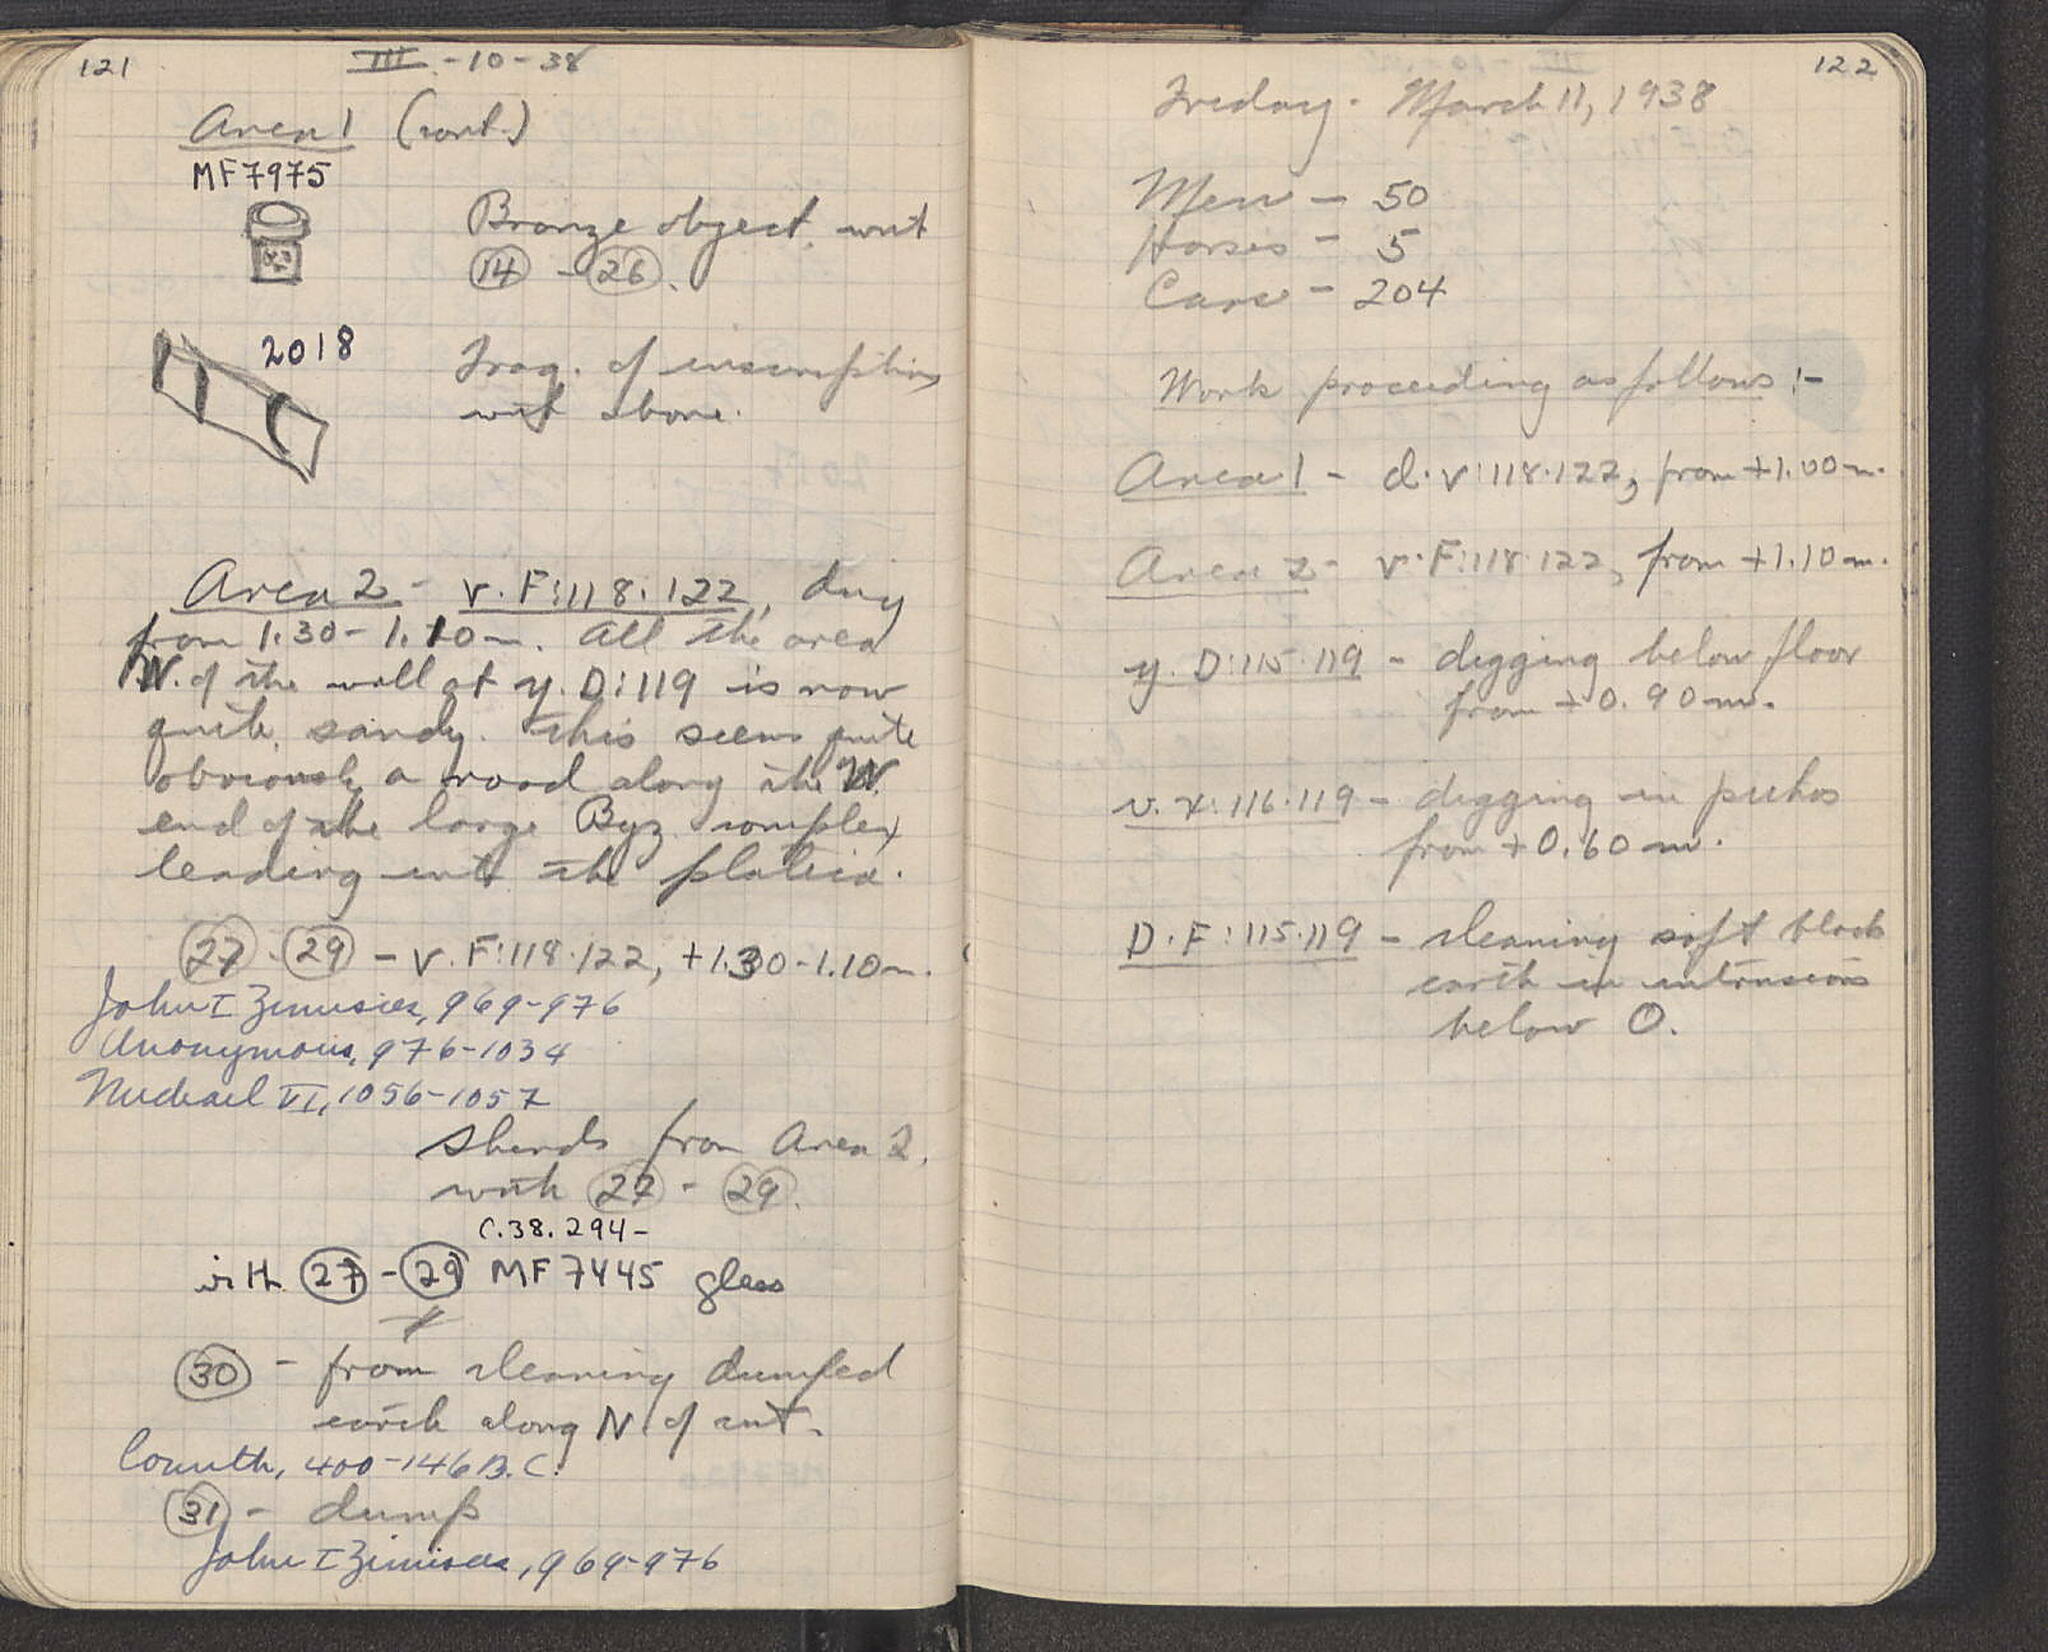 121
III-10-38
Area 1 (cont.)
MF7975
Bronze object, wit
14 - 26.
2018
Frag. of inscription
wit above.
Area 2 - v.F:118.122, dug
from 1.30-1.10m. All the area
W. of the wall at y.D:119 is now
quite sandy. This seems quite
obviously a road along the W.
end of the large Byz. complex
leading into the plateia.
27 - 29 - v.F:118.122, +1.30-1.10m.
John I Zimisces, 969-976
Anonymous, 976-1034
Michael VI, 1056-1057
Sherds from Area 2,
with 27 - 29.
C.38.294-
with 27 - 29 MF 7445 glass
30 - from cleaning dumped
earth along N. of ant.
Corinth, 400-146 B.C.
31 - dump
John I Zimisces, 969-976
122
Friday - March 11, 1938
Men - 50
Horses - 5
Cars - 204
Work proceeding as follows:-
Area 1 - d.v:118.122, from +1.00m.
Area 2 - v.F:118.122, from +1.10m.
y.D:115.119 - digging below floor
from +0.90m.
v.x:116.119 - digging in pithos
from +0.60m.
D.F:115.119 - cleaning soft black
earth in intrusions
below 0.